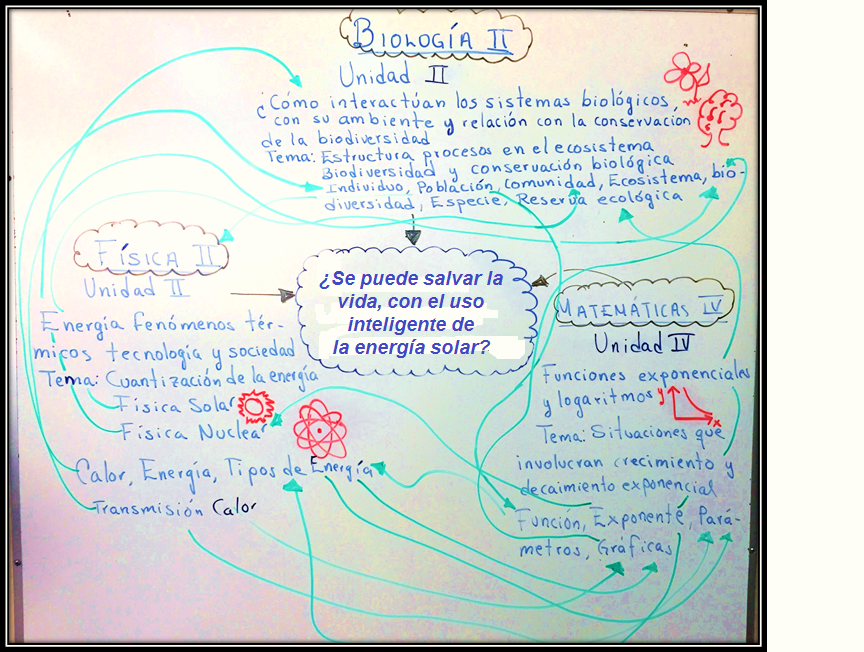 BIOLOGÍA II
Unidad II
¿Cómo interactúan los sistemas biológicos,
con su ambiente y relación con la conservación
de la biodiversidad
Tema: Estructura procesos en el ecosistema
Biodiversidad y conservación biológica
Individuo, Población, Comunidad, Ecosistema, bio-
diversidad, Especie, Reserva ecológica
FÍSICA II
Unidad II
Energía fenómenos tér-
micos tecnología y sociedad
Tema: Cuantización de la energía
Física Solar
Física Nuclear
Calor, Energía, Tipos de Energía
Transmisión Calor
¿Se puede salvar la
vida, con el uso
inteligente de
la energía solar?
MATEMÁTICAS IV
Unidad IV
Funciones exponenciales
y logaritmos
y
x
Tema: Situaciones que
involucran crecimiento y
decaimiento exponencial
Función, Exponente, Pará-
metros, Gráficas